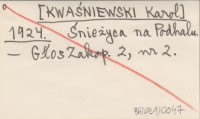 [KWAŚNIEWSKI Karol]
1924. Śnieżyca na Podhalu.
— Głos Zakop. 2, nr 2.